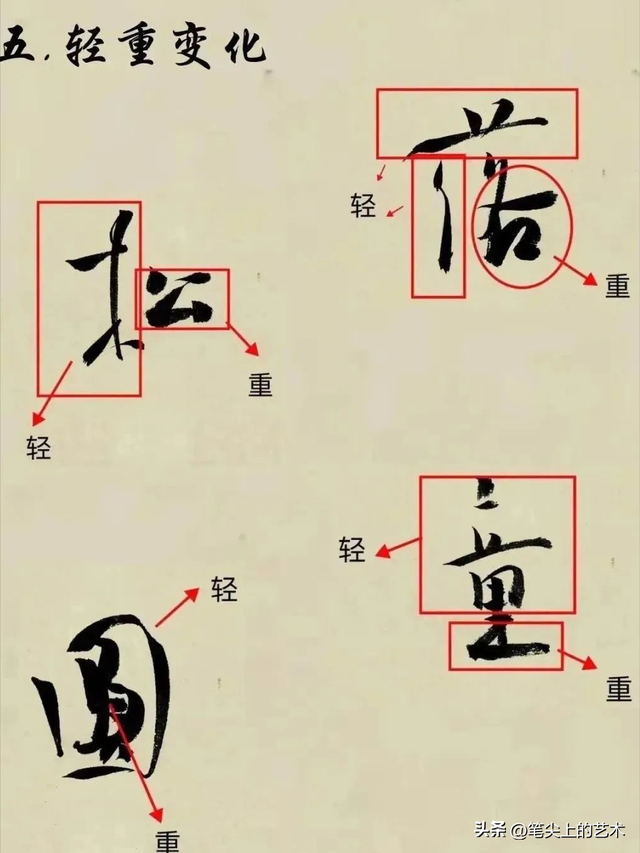 五.轻重变化
落
轻
重
松
重
轻
童
轻
重
圆
轻
重
头条 @笔尖上的艺术